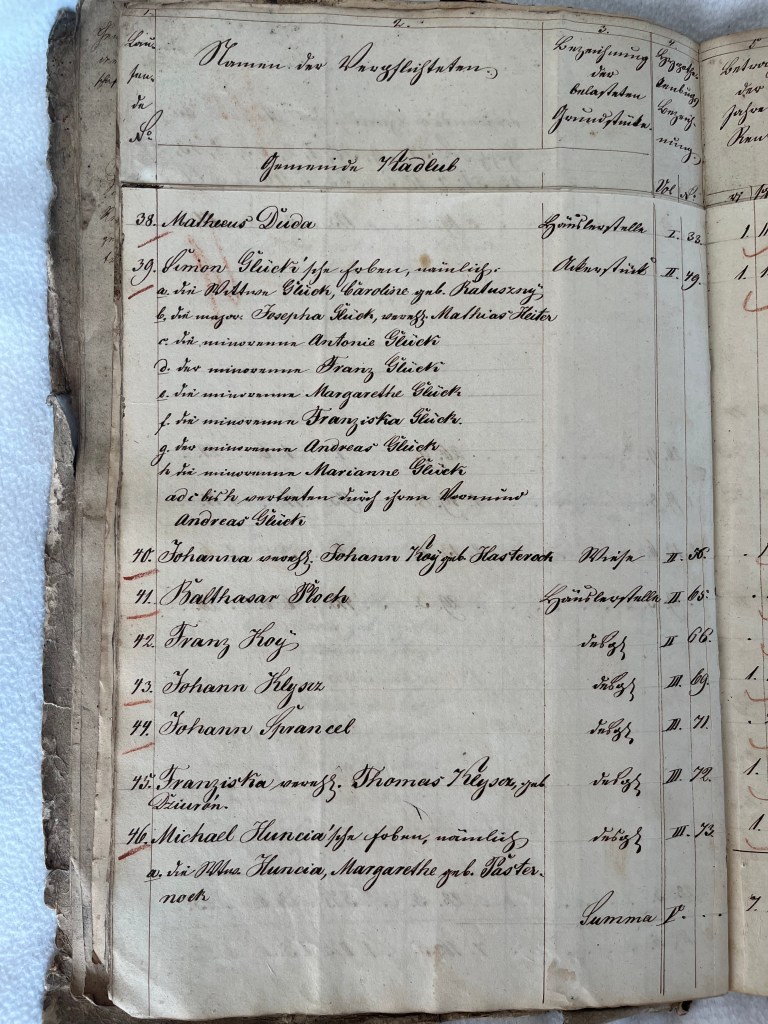 1. 2. 3. 4. 5
Lau-
fen-
de
No
Namen der Verpflichteten.
Bezeichnung
der
belasteten
Grundstücke.
Hypothe-
kenbuchs
Bezeich-
nung.
Betrag
der
Jahres
Ren
Gemeinde Kadlub
Vol No.
38. Matheus Duda Häuslerstelle I. 38.
39. Simon Glück'sche Erben, nämlich: Ackerstück II. 49.
a. die Wittwe Glück, Caroline geb. Katuszny
b. die major. Josepha Glück, verehl. Mathias Heiter
c. die minorenne Antonie Glück
d. der minorenne Franz Glück
e. die minorenne Margarethe Glück
f. die minorenne Franziska Glück.
g. der minorenne Andreas Glück
h. die minorenne Marianne Glück
ad c bis h vertreten durch ihren Vormund
Andreas Glück
40. Johanna verehl. Johann Koÿ geb. Hasterock Wiese II. 56.
41. Balthasar Ploch Häuslerstelle II. 65.
42. Franz Koÿ desgl II 66.
43. Johann Klyscz desgl III. 69.
44. Johann Sprancel desgl III. 71.
45. Franziska verehl. Thomas Klyscz, geb desgl III. 72.
Dziuron.
46. Michael Huncia'sche Erben, nämlich desgl III. 73.
a. die Wtw. Huncia, Margarethe geb. Paster-
nock
Summa V. 7.